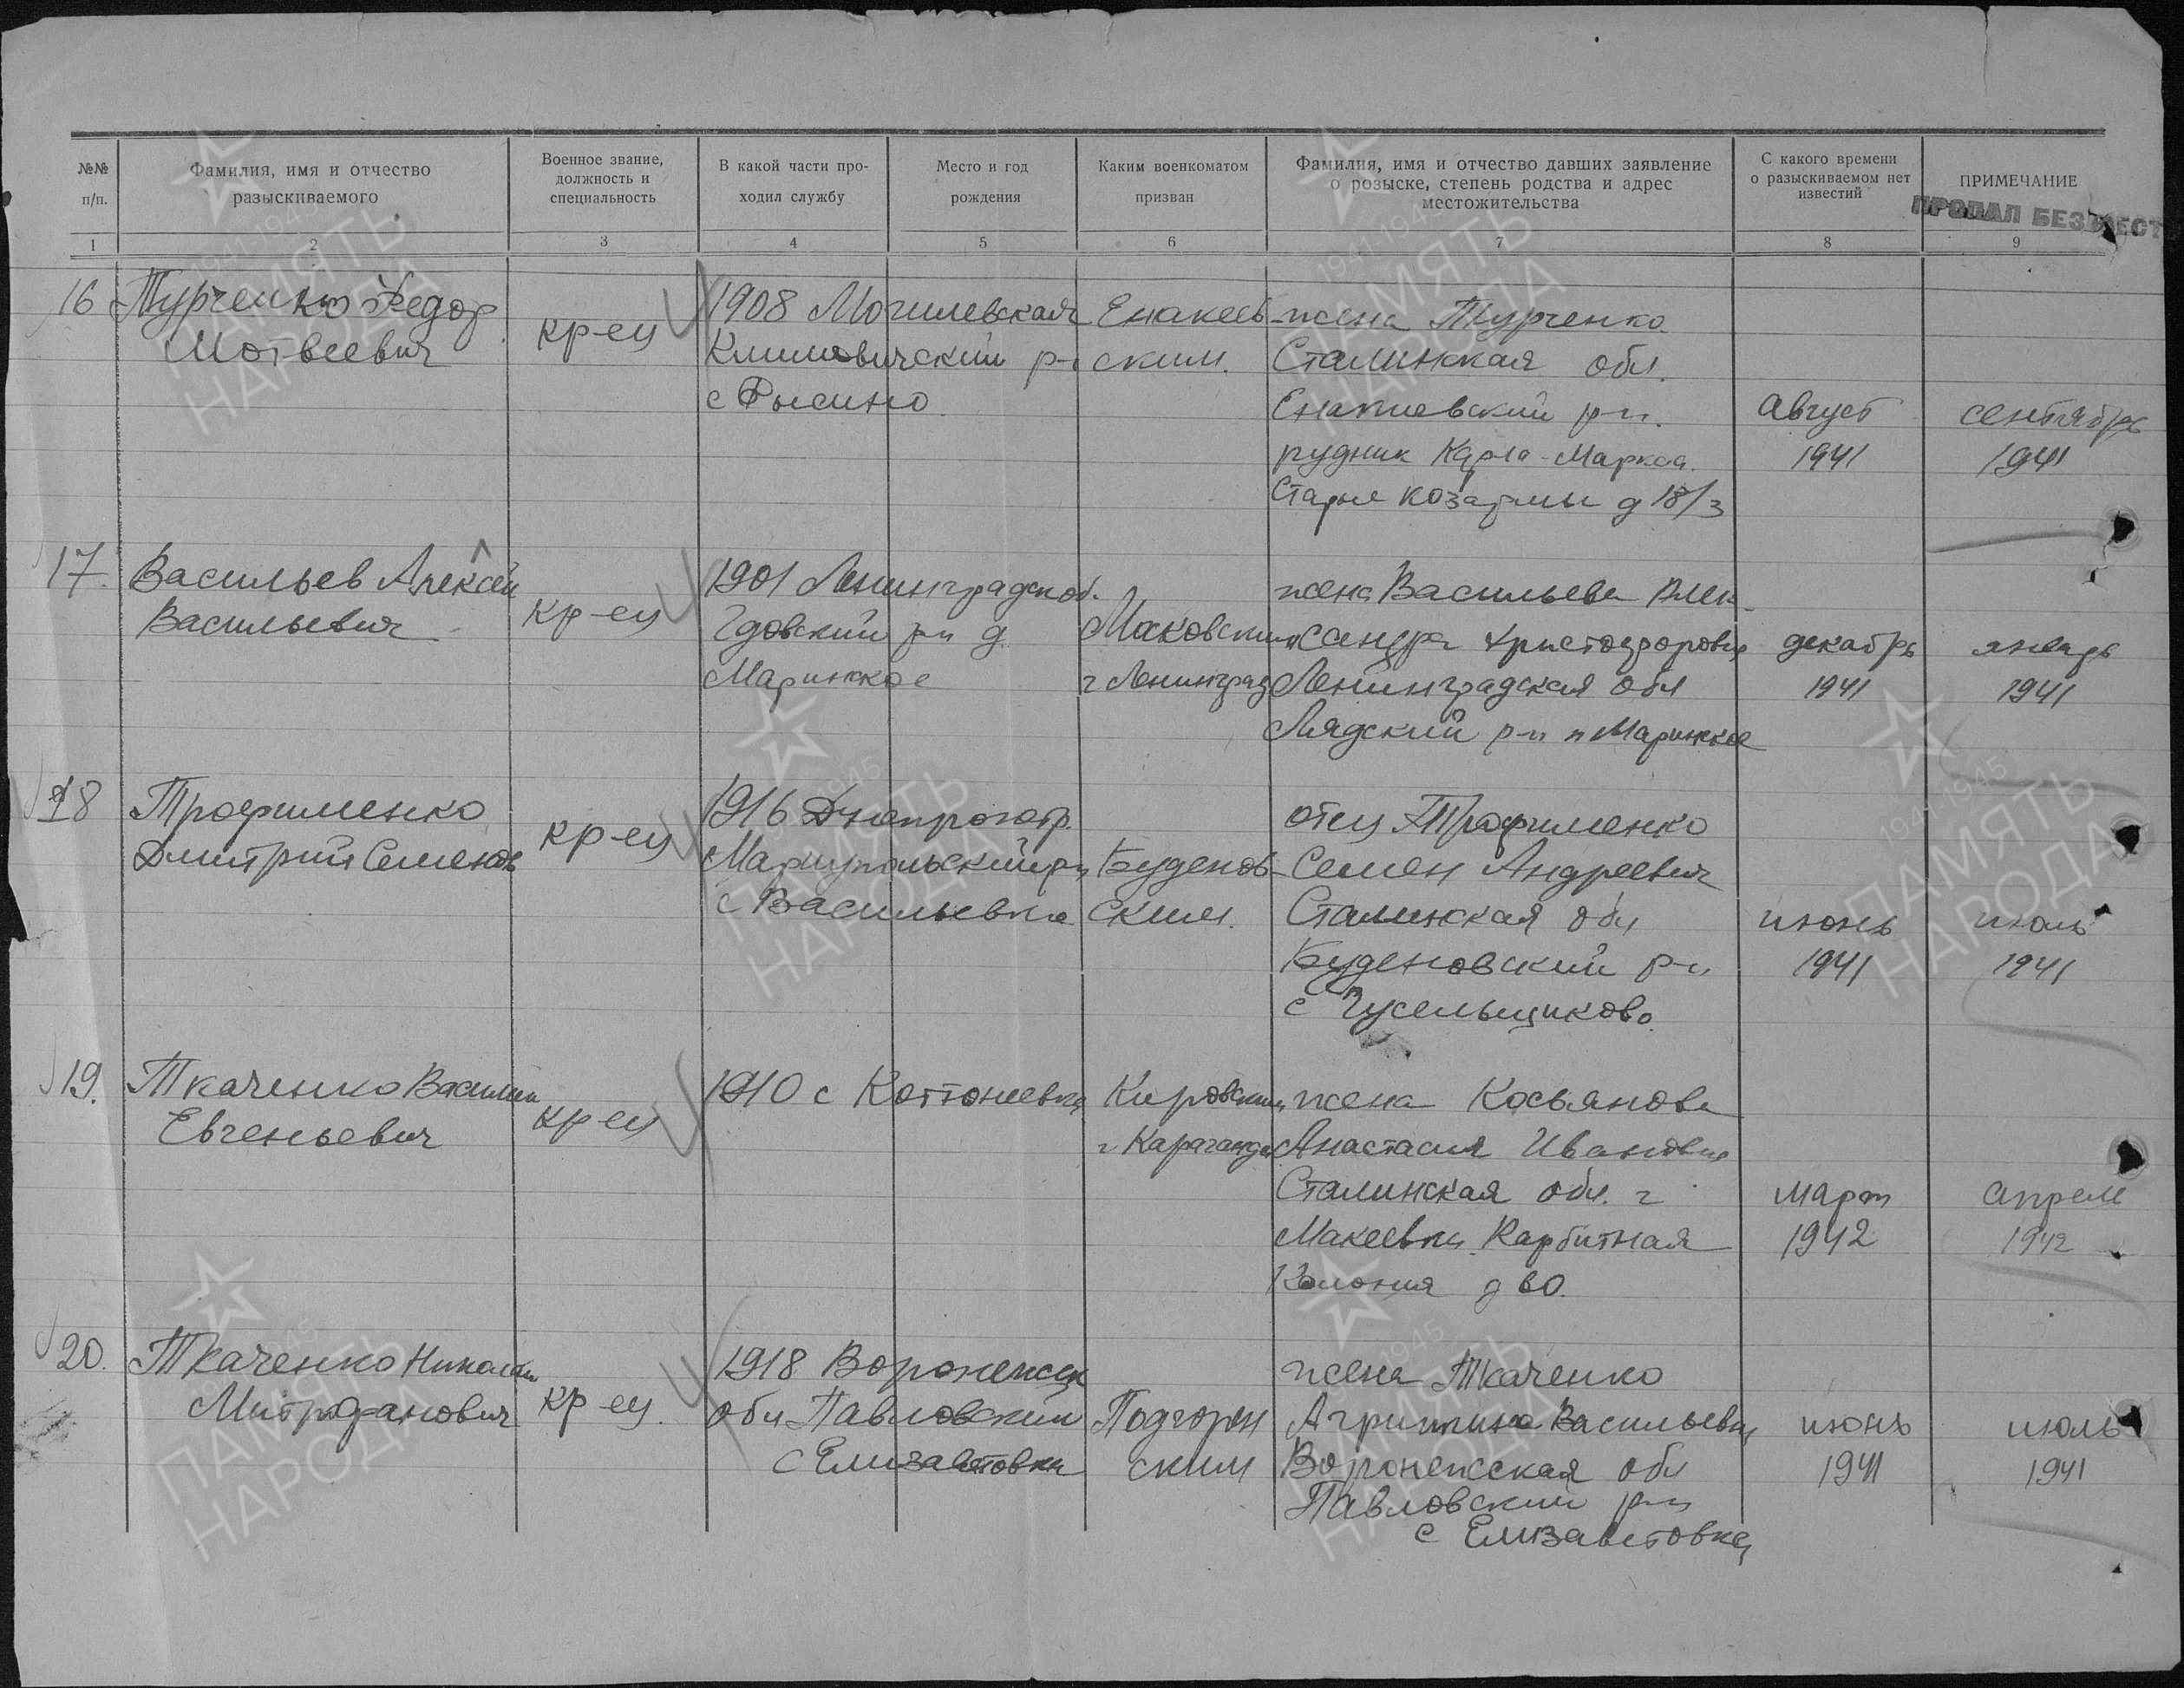 №№ п/п.
Фамилия, имя и отчество разыскиваемого
Военное звание, должность и специальность
В какой части проходил службу
Место и год рождения
Каким военкоматом призван
Фамилия, имя и отчество давших заявление о розыске, степень родства и адрес местожительства
С какого времени о разыскиваемом нет известий
ПРИМЕЧАНИЕ
ПРОПАЛ БЕЗ ВЕСТ
1 2 3 4 5 6 7 8 9
16 Турченко Федор
Мотвеевич
кр-ец
1908 Могилевская
Климовичский р-н
с
Енакеев-
ским.
жена Турченко
Сталинская обл.
Енакиевский р-н.
рудник Карла-Маркса.
Старые козармы д 18/3
Август
1941
сентябрь
1941
17. Васильев Алексей
Васильевич
кр-ец
1901 Ленинградск об.
Гдовский р-н д
Маринское
Московским
г Ленинград
жена Васильева Алек-
сандра Христофоровна
Ленинградская обл
Лядский р-н п Маринское
декабрь
1941
январь
1941
18 Трофименко
Дмитрий Семенов
кр-ец
1916 Днепропетр.
Мариупольский р-н
с Васильевка
Буденов-
ским.
отец Трофименко
Семен Андреевич
Сталинская обл
Буденовский р-н
с Гусельщиково.
июнь
1941
июль
1941
19. Ткаченко Василий
Евгеньевич
кр-ец
1910 с
Кировским
г Караганда
жена Косьянова
Анастасия Ивановна
Сталинская обл. г
Макеевка Карбитная
Колония д 60.
март
1942
апрель
1942
20. Ткаченко Николай
Митрофанович
кр-ец.
1918 Воронежск
обл Павловский
с Елизаветовка
Подгорен
ским
жена Ткаченко
Агрипина Васильевна
Воронежская обл
Павловский р-н
с Елизаветовка
июнь
1941
июль
1941
1941 1945
ПАМЯТЬ
НАРОДА